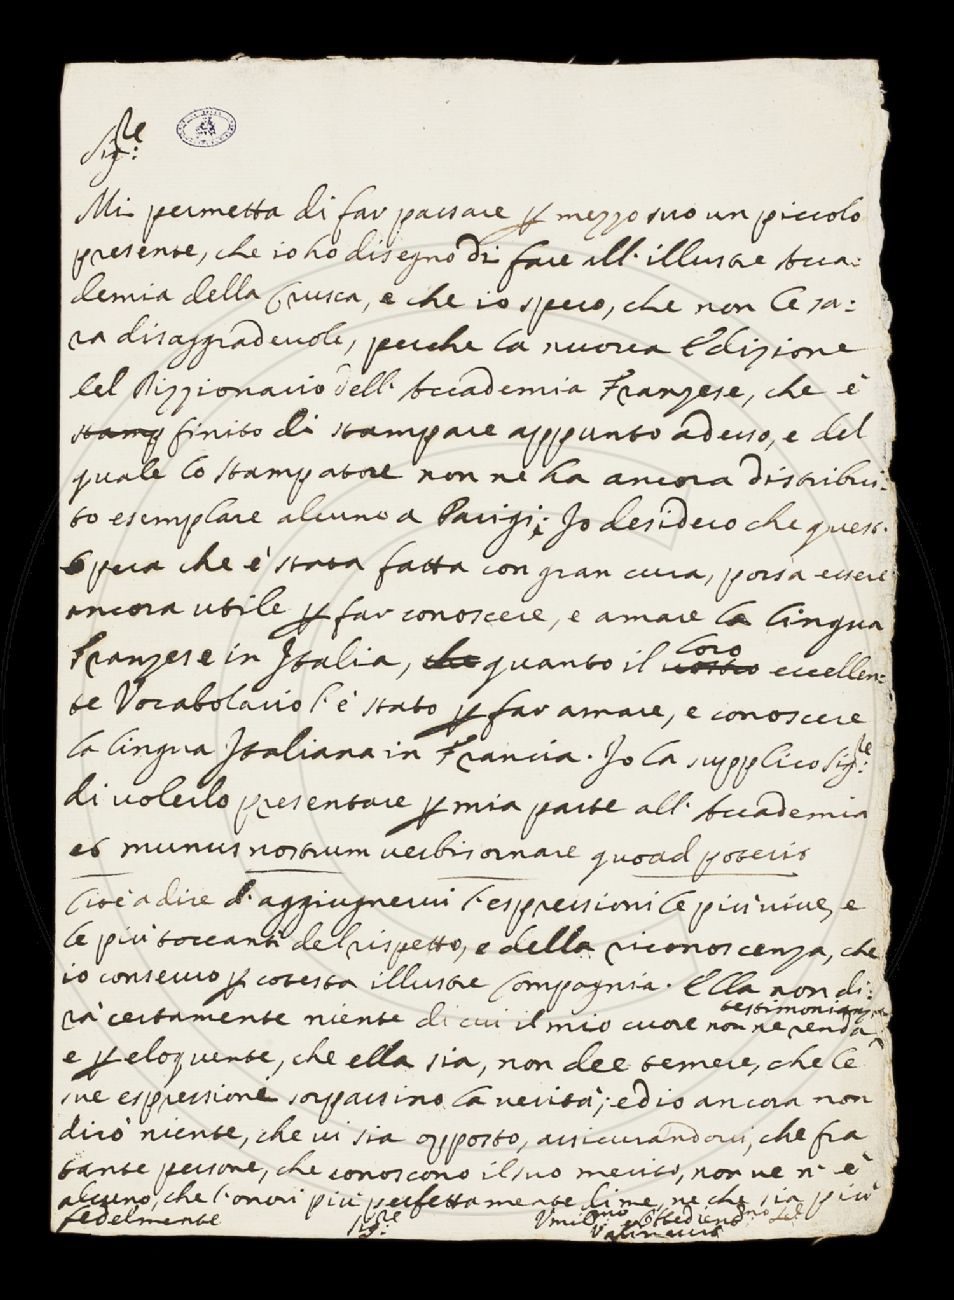 Sig.re
Mi permetta di far passare p mezzo suo un piccolo
presente, che io ho disegno di fare all' illustre Acca:
demia della Crusca, e che io spero, che non le sa:
ra disaggradevole, perche la nuova Edizione
del Dizzionario dell' Accademia Franzese, che è
stamp finito di stampare appunto adesso, e del
quale lo stampatore non ne ha ancora distribui:
to esemplare alcuno a Parigi; Jo desidero che quest'
Opera che è stata fatta con gran cura, possa essere
ancora utile p far conoscere, e amare la lingua
Franzese in Italia, che quanto il vostro loro eccellen:
te Vocabolario l'è stato p far amare, e conoscere
la lingua Italiana in Francia. Jo la supplico Sig.re
di volerlo presentare p mia parte all' Accademia
et munus nostrum verbis ornare quoad poteris
cioè a dire d'aggiugnervi l'espressioni le più vive, e
le più toccanti del rispetto, e della riconoscenza, che
io conservo p cotesta illustre Compagnia. Ella non di:
rà certamente niente di cui il mio cuore non ne renda testimonianza
e p eloquente, che ella sia, non dee temere, che le
sue espressioni sorpassino la verità; ed io ancora non
dirò niente, che vi sia opposto, assicurandovi, che fra
tante persone, che conoscono il suo merito, non ve n'è
alcuno, che l'onori più perfettamente di me, ne che sia più
fedelmente Sig.re Umil.mo e Obbedien.mo